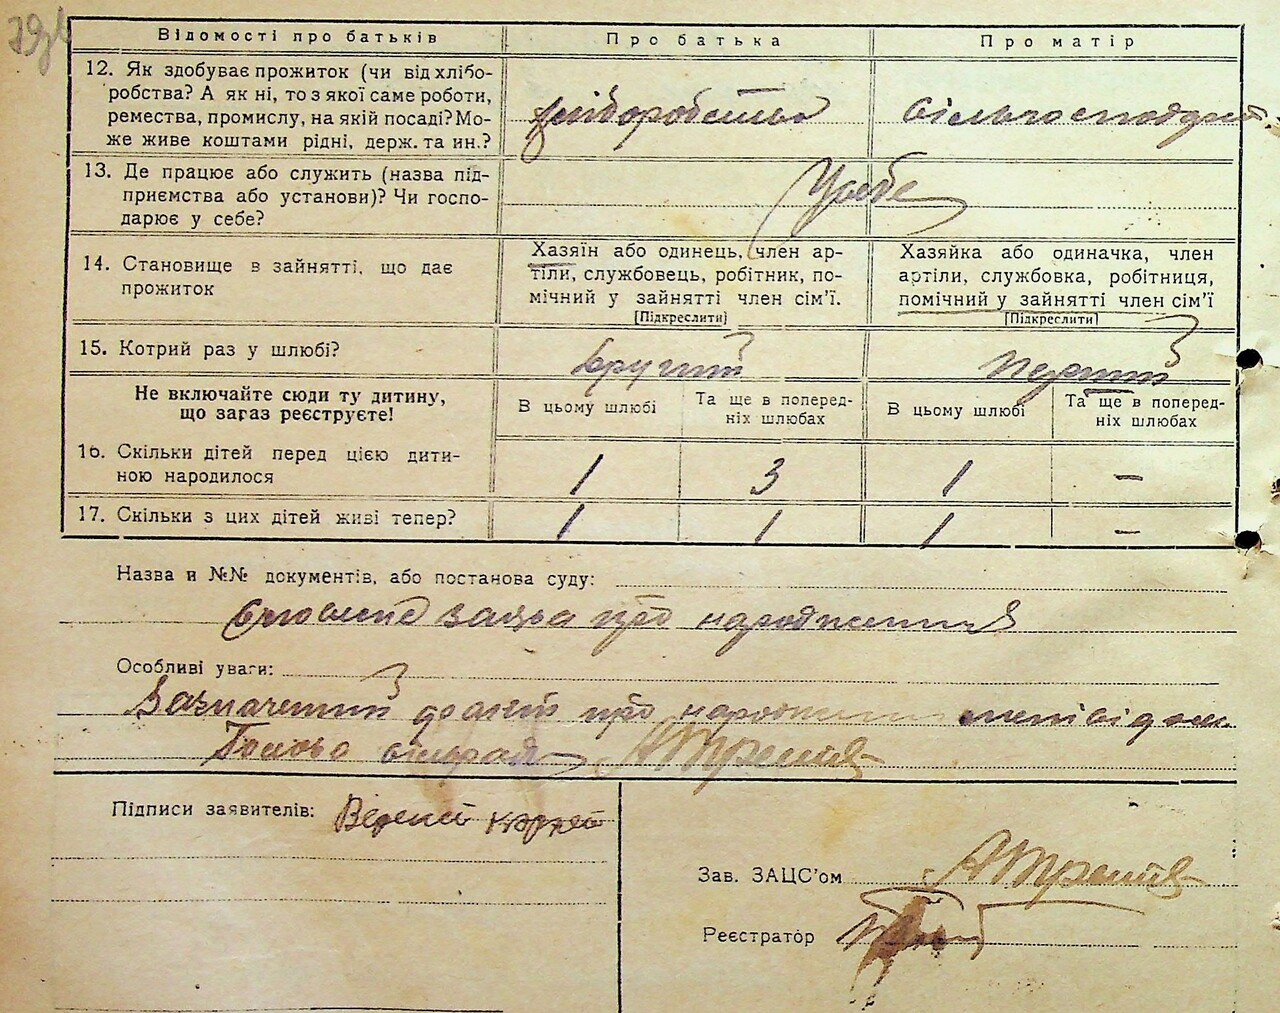 Відомості про батьків
Про батька
Про матір
12. Як здобуває прожиток (чи від хлібо-
робства? А як ні, то з якої саме роботи,
ремества, промислу, на якій посаді? Мо-
же живе коштами рідні, держ. та ин.?
хліборобство
13. Де працює або служить (назва під-
приємства або установи)? Чи госпо-
дарює у себе?
У себе
14. Становище в зайнятті, що дає
прожиток
Хазяїн або одинець, член ар-
тіли, службовець, робітник, по-
мічний у зайнятті член сім’ї.
[Підкреслити]
Хазяйка або одиначка, член
артіли, службовка, робітниця,
помічний у зайнятті член сім’ї
[Підкреслити]
15. Котрий раз у шлюбі?
другий
перший
Не включайте сюди ту дитину,
що зараз реєструєте!
В цьому шлюбі
Та ще в поперед-
ніх шлюбах
В цьому шлюбі
Та ще в поперед-
ніх шлюбах
16. Скільки дітей перед цією дити-
ною народилося
1
3
1
—
17. Скільки з цих дітей живі тепер?
1
1
1
—
Назва и №№ документів, або постанова суду:
про народження
Особливі уваги:
Зазначений про народження мені відом.
Голова сільради
Підписи заявителів:
Зав. ЗАЦС’ом
Реєстратор